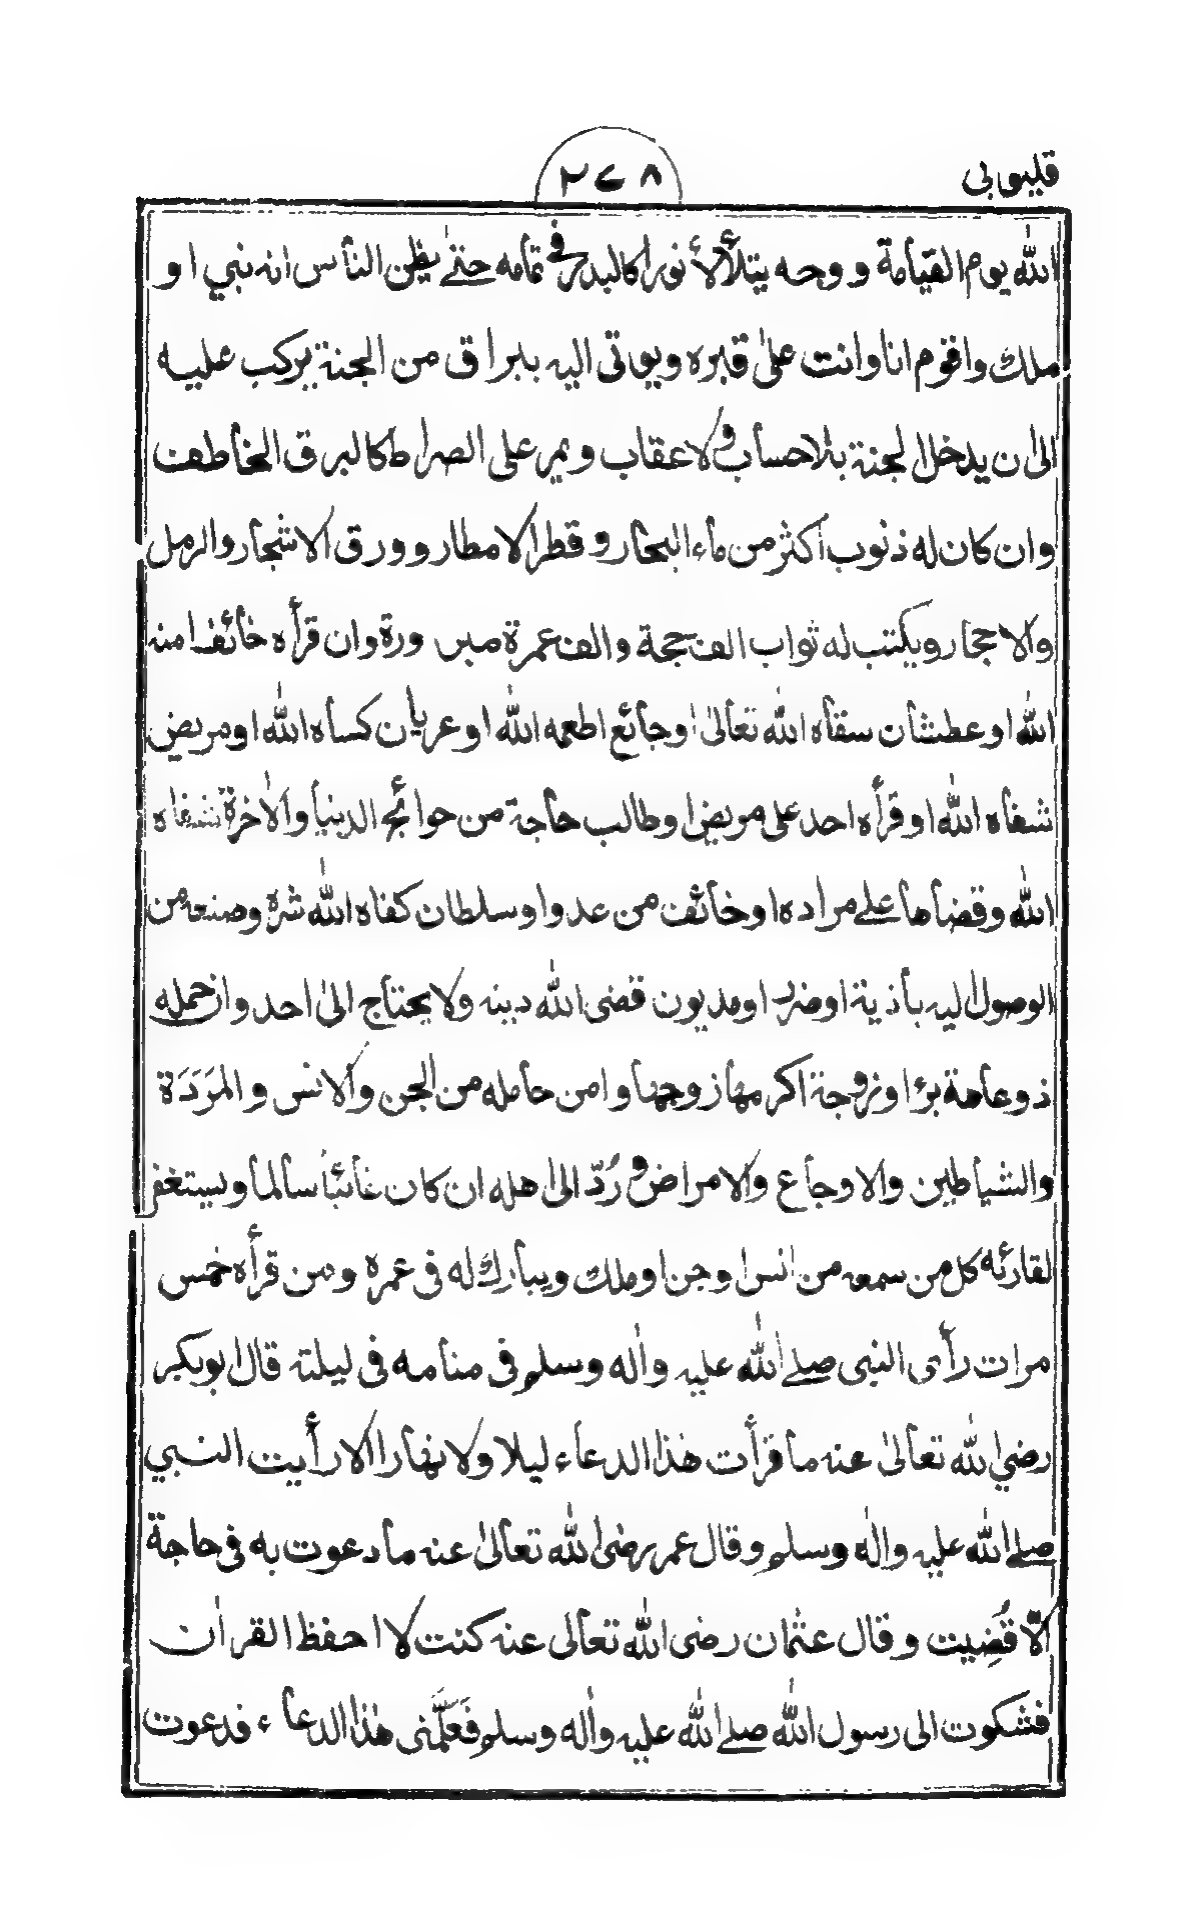 قليوبي
٢٧٨
الله يوم القيأمة ووجهه يتلألأ نوراكالبدر في تمأمه حتى يظن النأس انه نبي او
ملك واقوم انا وانت على قبره ويوتى اليه ببراق من الجنة يركب عليه
الى ان يدخل الجنة بلاحسأب ولاعقاب ويمر على الصراط كالبرق الخأطف
وان كان له ذنوب أكثر من مأء البحأر وقطر الامطار وورق الاشجأر والرمل
والاحجار ويكتب له ثواب الف حجة والف عمرة مبرورة وان قرأه خأئف امنه
الله اوعطشأن سقأه الله تعألى اوجأئع اطعمه الله اوعريأن كسأه الله اومريض
شفأه الله اوقرأه احد على مريض اوطالب حأجة من حوائج الدنيأ والاخرة شفاه
الله وقضأها على مراده اوخأئف من عدو اوسلطان كفاه الله شره ومنعه من
الوصول اليه بأذية اوضرر اومديون قضى الله دينه ولايحتأج الى احد وان حمله
ذوعاهة برا اوزوجة اكرمها زوجها وامن حأمله من الجن والانس والمَرَدَة
والشيأطين والاوجأع والامراض ورُدّ الى اهله ان كان غأئبأ سألمأ ويستغفر
لقارئه كل من سمعه من انس اوجن اوملك ويبأرك له فى عمره ومن قرأه خمس
مرات رأى النبى صلى الله عليه واله وسلم فى منامه فى ليلته قال ابوبكر
رضي الله تعألى عنه ما قرأت هذا الدعأء ليلا ولانهارا الا رأيت النبي
صلى الله عليه واله وسلم وقال عمر رضى الله تعألى عنه مأدعوت به فى حاجة
الّا قُضِيت وقال عثمان رضى الله تعألى عنه كنت لااحفظ القران
فشكوت الى رسول الله صلى الله عليه واله وسلم فَعَلَّمَنى هذا الدعأء فدعوت